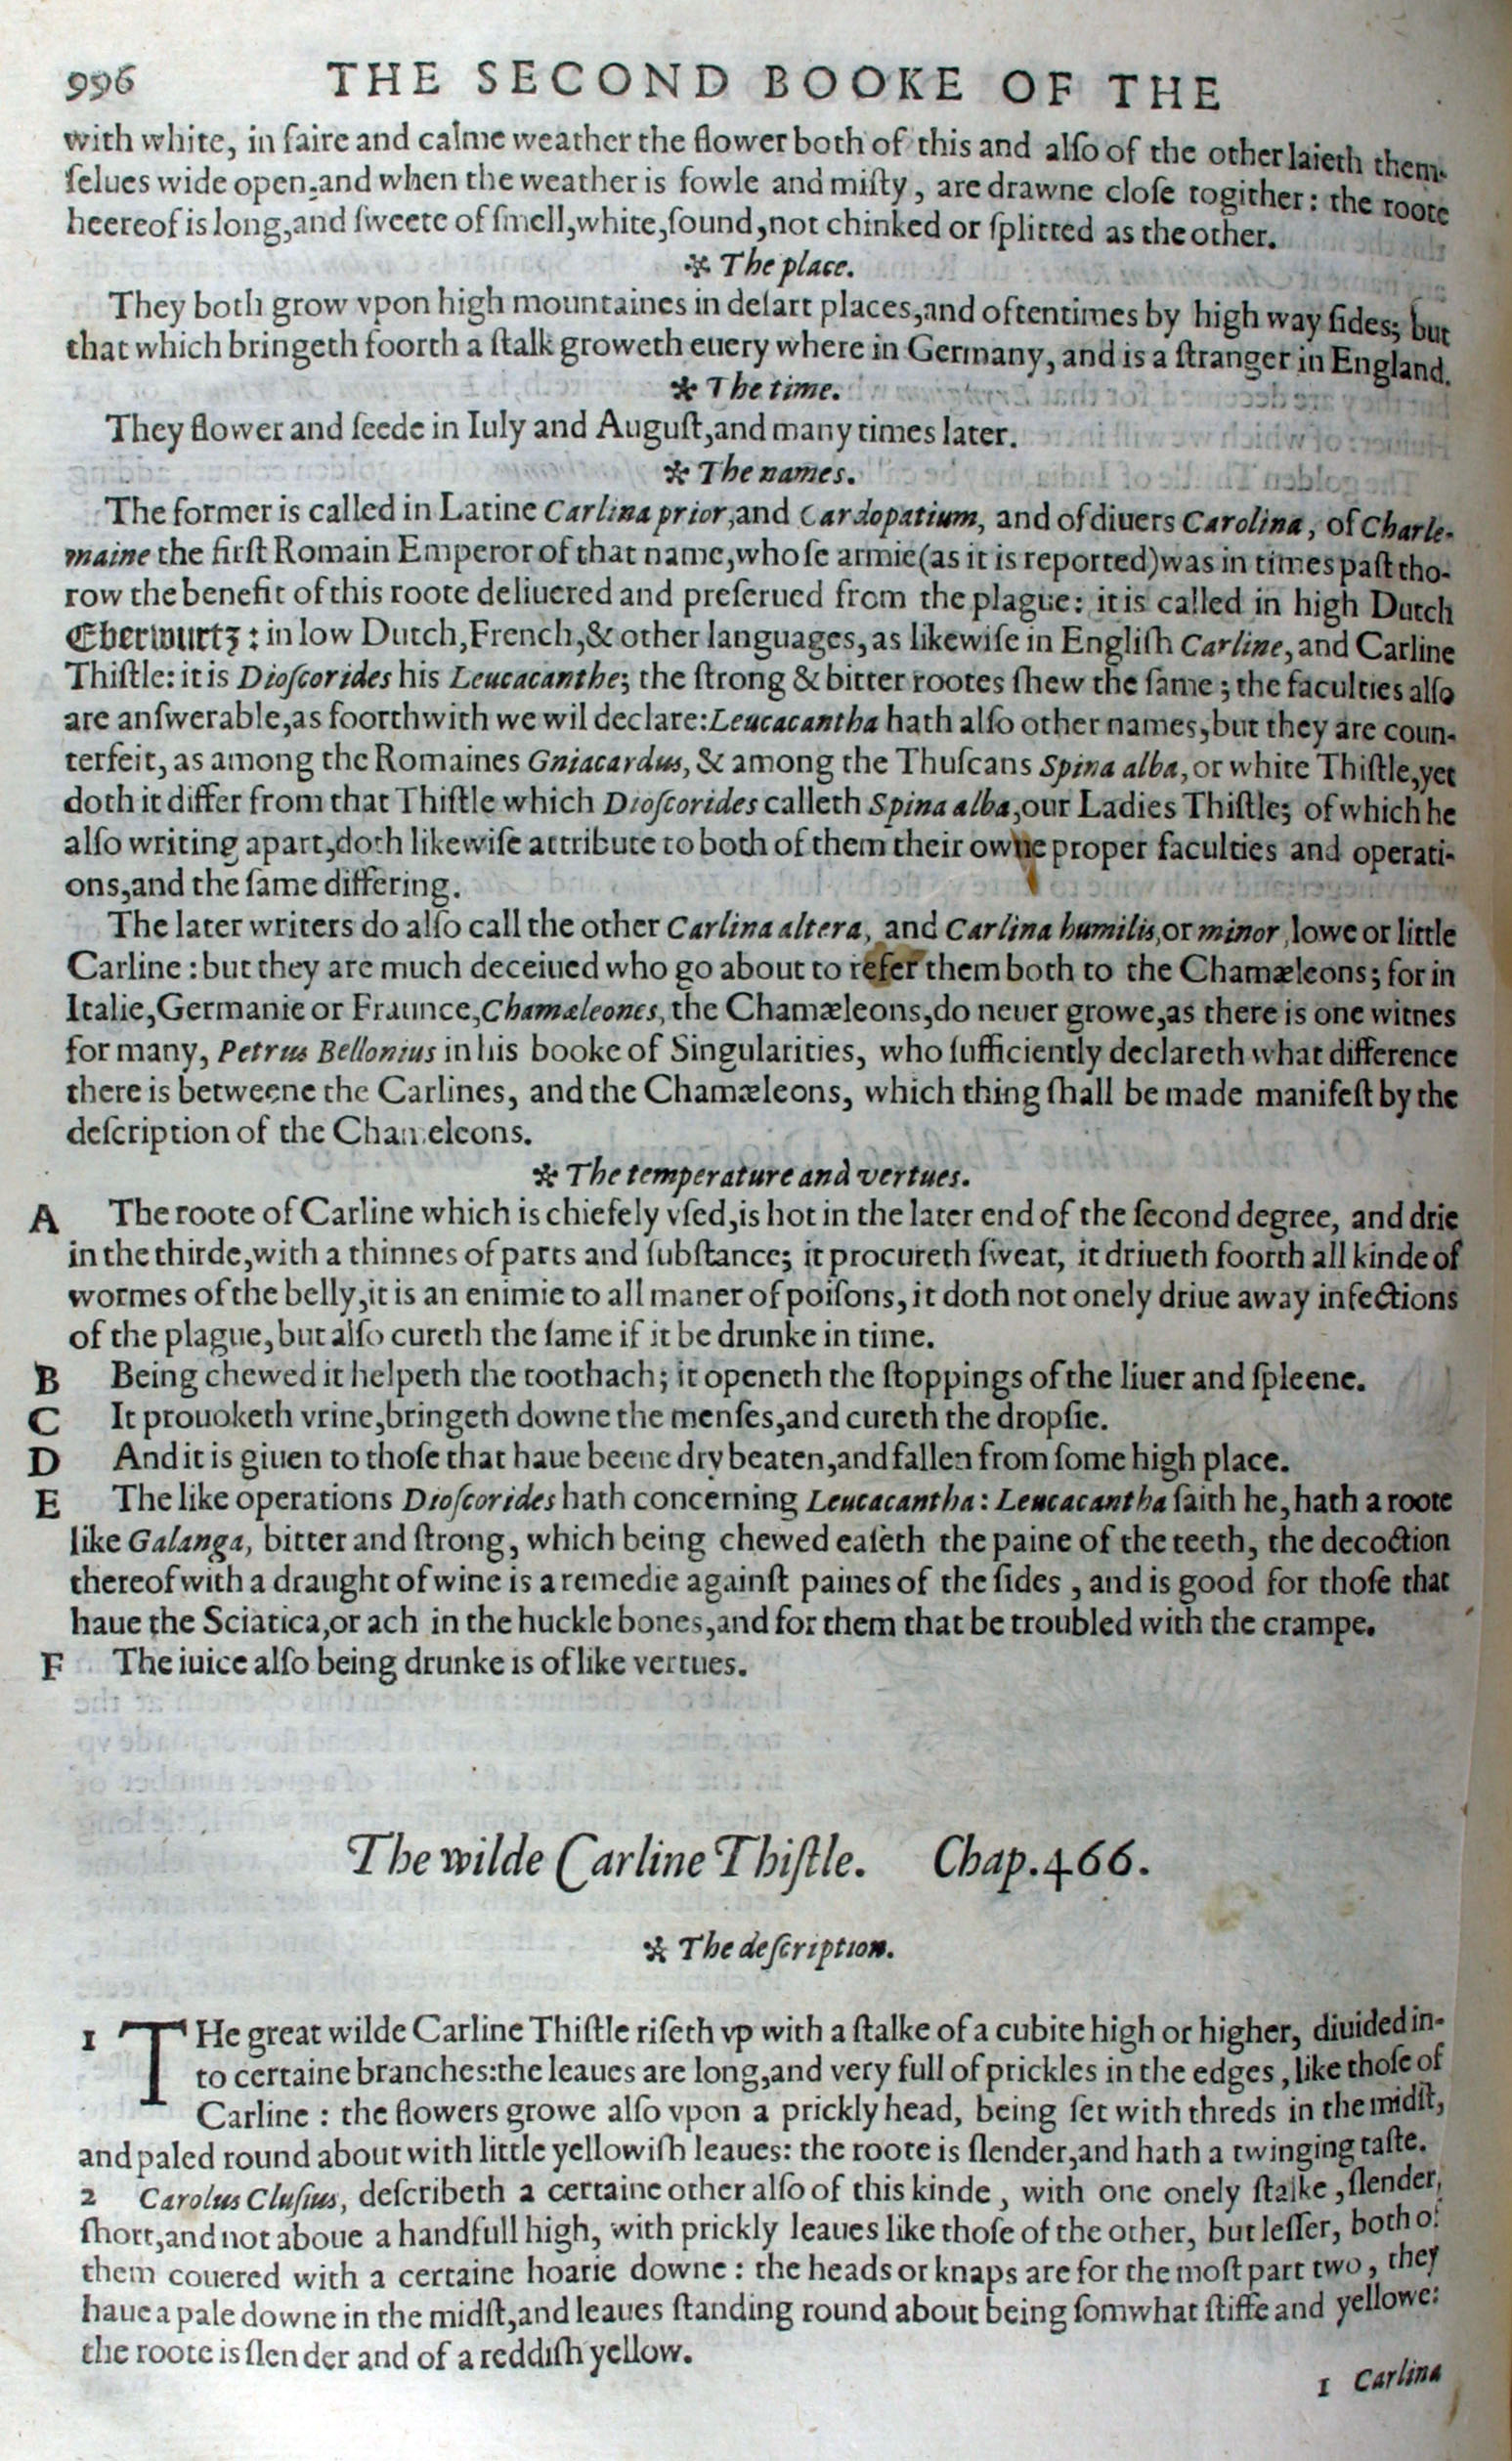 996 THE SECOND BOOKE OF THE
with white, in faire and calme weather the flower both of this and alſo of the other laieth them-
ſelues wide open, and when the weather is fowle and miſty, are drawne cloſe togither: the roote
heereof is long, and ſweete of ſmell, white, ſound, not chinked or ſplitted as the other.
✲ The place.
They both grow vpon high mountaines in deſart places, and oftentimes by high way ſides; but
that which bringeth foorth a ſtalk groweth euery where in Germany, and is a ſtranger in England.
✲ The time.
They flower and ſeede in Iuly and Auguſt, and many times later.
✲ The names.
The former is called in Latine Carlina prior, and Cardopatium, and of diuers Carolina, of Charle-
maine the firſt Romain Emperor of that name, whoſe armie (as it is reported) was in times paſt tho-
row the benefit of this roote deliuered and preſerued from the plague: it is called in high Dutch
Eberwurtz: in low Dutch, French, & other languages, as likewiſe in Engliſh Carline, and Carline
Thiſtle: it is Dioſcorides his Leucacanthe; the ſtrong & bitter rootes ſhew the ſame; the faculties alſo
are anſwerable, as foorthwith we wil declare: Leucacantha hath alſo other names, but they are coun-
terfeit, as among the Romaines Gniacardus, & among the Thuſcans Spina alba, or white Thiſtle, yet
doth it differ from that Thiſtle which Dioſcorides calleth Spina alba, our Ladies Thiſtle; of which he
alſo writing apart, doth likewiſe attribute to both of them their owne proper faculties and operati-
ons, and the ſame differing.
The later writers do alſo call the other Carlina altera, and Carlina humilis, or minor, lowe or little
Carline: but they are much deceiued who go about to refer them both to the Chamæleons; for in
Italie, Germanie or Fraunce, Chamæleones, the Chamæleons, do neuer growe, as there is one witnes
for many, Petrus Bellonius in his booke of Singularities, who ſufficiently declareth what difference
there is betweene the Carlines, and the Chamæleons, which thing ſhall be made manifeſt by the
deſcription of the Chameleons.
✲ The temperature and vertues.
A The roote of Carline which is chiefely vſed, is hot in the later end of the ſecond degree, and drie
in the thirde, with a thinnes of parts and ſubſtance; it procureth ſweat, it driueth foorth all kinde of
wormes of the belly, it is an enimie to all maner of poiſons, it doth not onely driue away infections
of the plague, but alſo cureth the ſame if it be drunke in time.
B Being chewed it helpeth the toothach; it openeth the ſtoppings of the liuer and ſpleene.
C It prouoketh vrine, bringeth downe the menſes, and cureth the dropſie.
D And it is giuen to thoſe that haue beene dry beaten, and fallen from ſome high place.
E The like operations Dioſcorides hath concerning Leucacantha: Leucacantha ſaith he, hath a roote
like Galanga, bitter and ſtrong, which being chewed eaſeth the paine of the teeth, the decoction
thereof with a draught of wine is a remedie againſt paines of the ſides, and is good for thoſe that
haue the Sciatica, or ach in the huckle bones, and for them that be troubled with the crampe.
F The iuice alſo being drunke is of like vertues.
The wilde Carline Thiſtle. Chap. 466.
✲ The deſcription.
1 THe great wilde Carline Thiſtle riſeth vp with a ſtalke of a cubite high or higher, diuided in-
to certaine branches: the leaues are long, and very full of prickles in the edges, like thoſe of
Carline: the flowers growe alſo vpon a prickly head, being ſet with threds in the midſt,
and paled round about with little yellowiſh leaues: the roote is ſlender, and hath a twinging taſte.
2 Carolus Cluſius, deſcribeth a certaine other alſo of this kinde, with one onely ſtalke, ſlender,
ſhort, and not aboue a handfull high, with prickly leaues like thoſe of the other, but leſſer, both of
them couered with a certaine hoarie downe: the heads or knaps are for the moſt part two, they
haue a pale downe in the midſt, and leaues ſtanding round about being ſomwhat ſtiffe and yellowe:
the roote is ſlender and of a reddiſh yellow.
1 Carlina